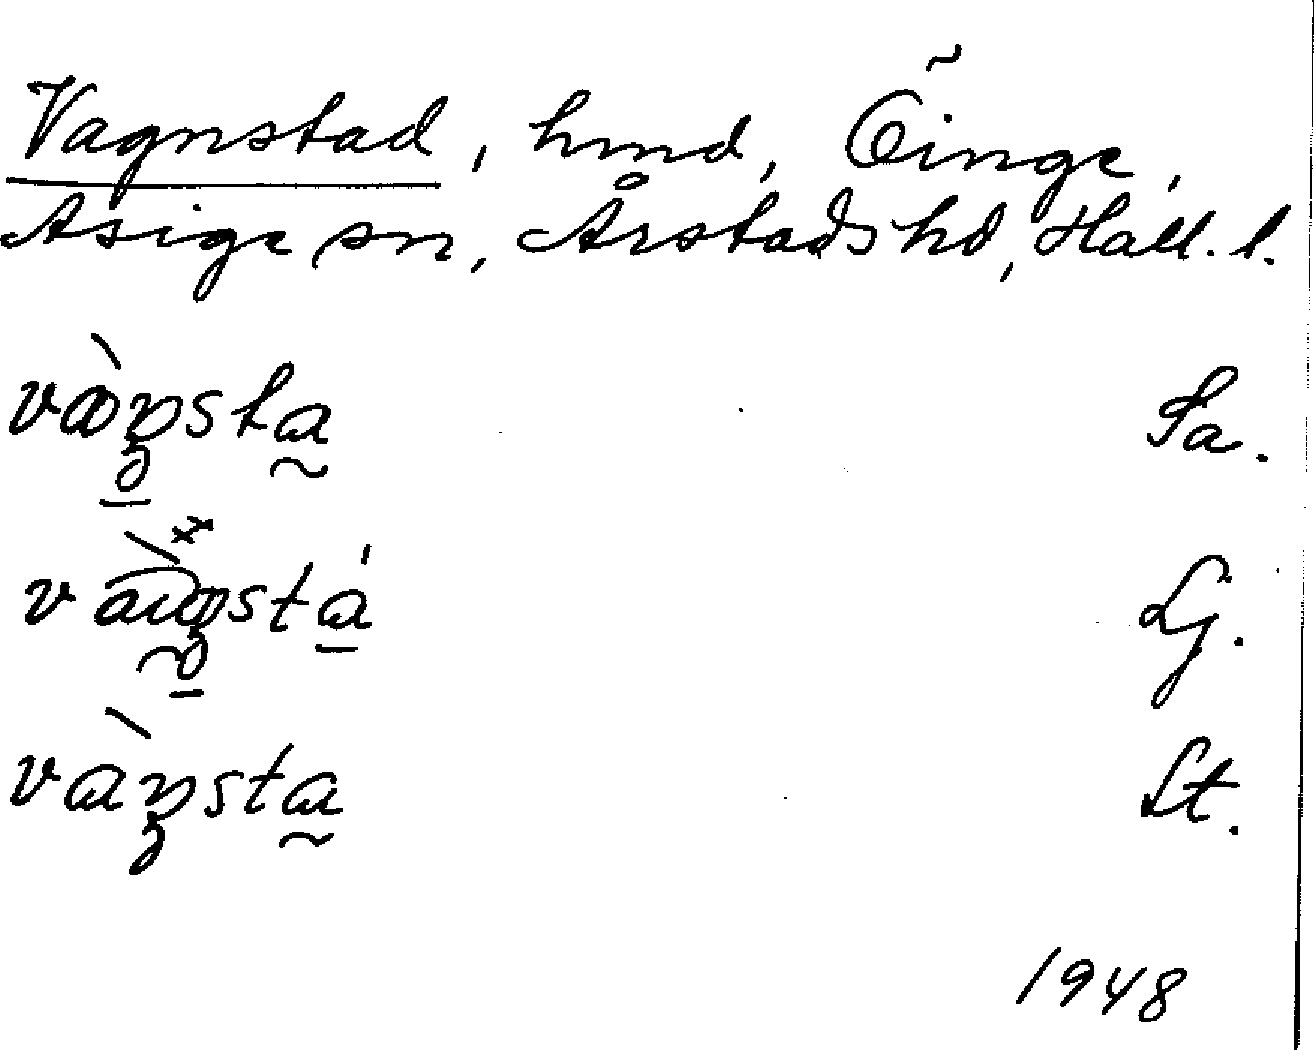 Vagnstad, hmd, Öinge,
Asige sn, Årstads hd, Hall. l.
vàŋsta Sa.
vàuŋstá Lj.
vàŋsta Lt.
1948